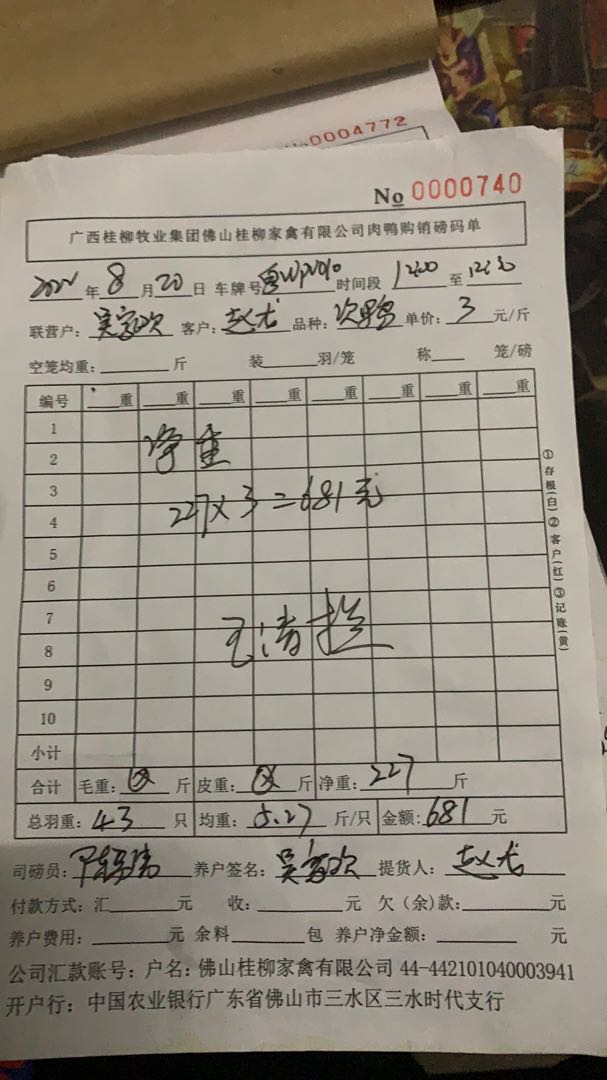 0004772
No 0000740
广西桂柳牧业集团佛山桂柳家禽有限公司肉鸭购销磅码单
年 8 月 20 日 车牌号 时间段 12:00 至
联营户: 吴家欢 客户: 赵龙 品种: 单价: 3 元/斤
空笼均重: 斤 装 羽/笼 称 笼/磅
编号 重 重 重 重 重 重 重 重
1
2 净重
3
4 227×3=681元
5
6
7
8
9
10
小计
合计 毛重: 斤 皮重: 斤 净重: 227 斤
总羽重: 43 只 均重: 5.27 斤/只 金额: 681 元
司磅员: 养户签名: 吴家欢 提货人: 赵龙
付款方式: 汇 元 收: 元 欠(余)款: 元
养户费用: 元 余料 包 养户净金额: 元
公司汇款账号: 户名: 佛山桂柳家禽有限公司 44-442101040003941
开户行: 中国农业银行广东省佛山市三水区三水时代支行
①存根(白)②客户(红)③记账(黄)